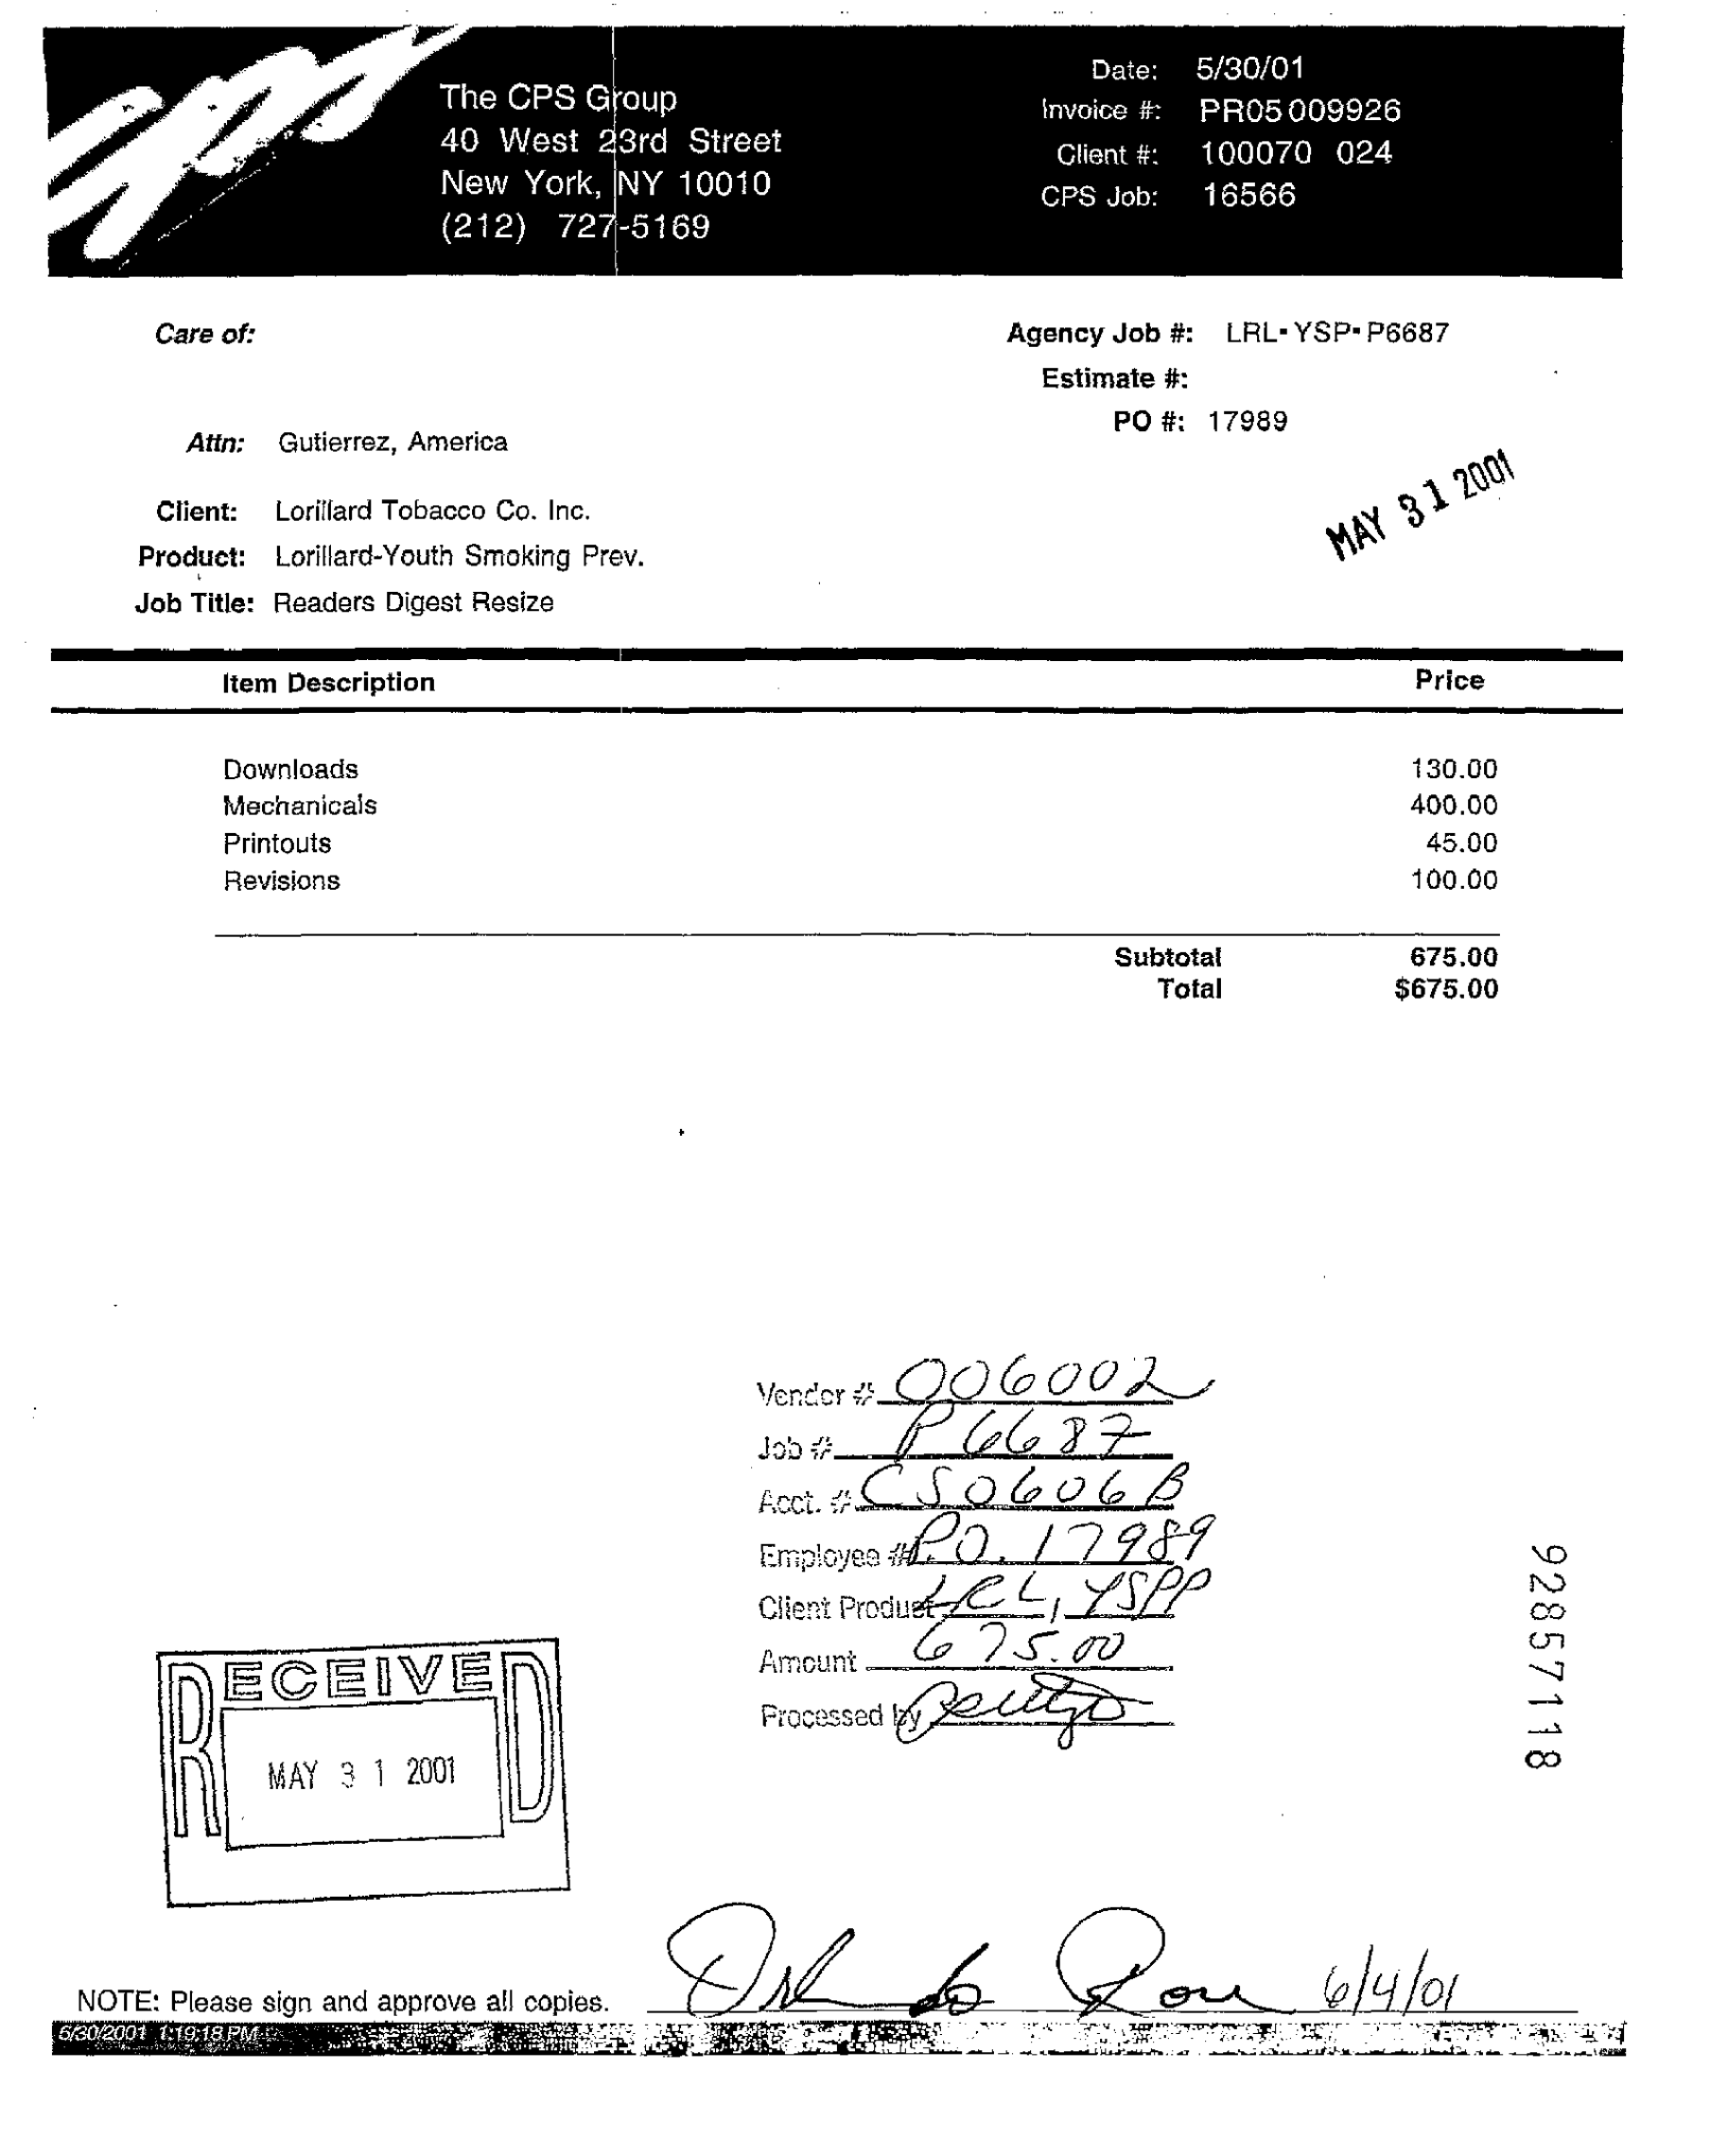 cps
The CPS Group
40 West 23rd Street
New York, NY 10010
(212) 727-5169
Date: 5/30/01
Invoice #: PR05009926
Client #: 100070 024
CPS Job: 16566
Care of:
Agency Job #: LRL-YSP-P6687
Estimate #:
PO #: 17989
Attn: Gutierrez, America
MAY 31 2001
Client: Lorillard Tobacco Co. Inc.
Product: Lorillard-Youth Smoking Prev.
Job Title: Readers Digest Resize
Item Description Price
Downloads 130.00
Mechanicals 400.00
Printouts 45.00
Revisions 100.00
Subtotal 675.00
Total $675.00
Vendor # 006002
Job # P6687
Acct. # CS0606B
Employee # P.O. 17989
Client Product LRL, YSPP
Amount 675.00
Processed by
92857118
RECEIVED
MAY 31 2001
NOTE: Please sign and approve all copies. 6/4/01
5/30/2001 1:19:18 PM